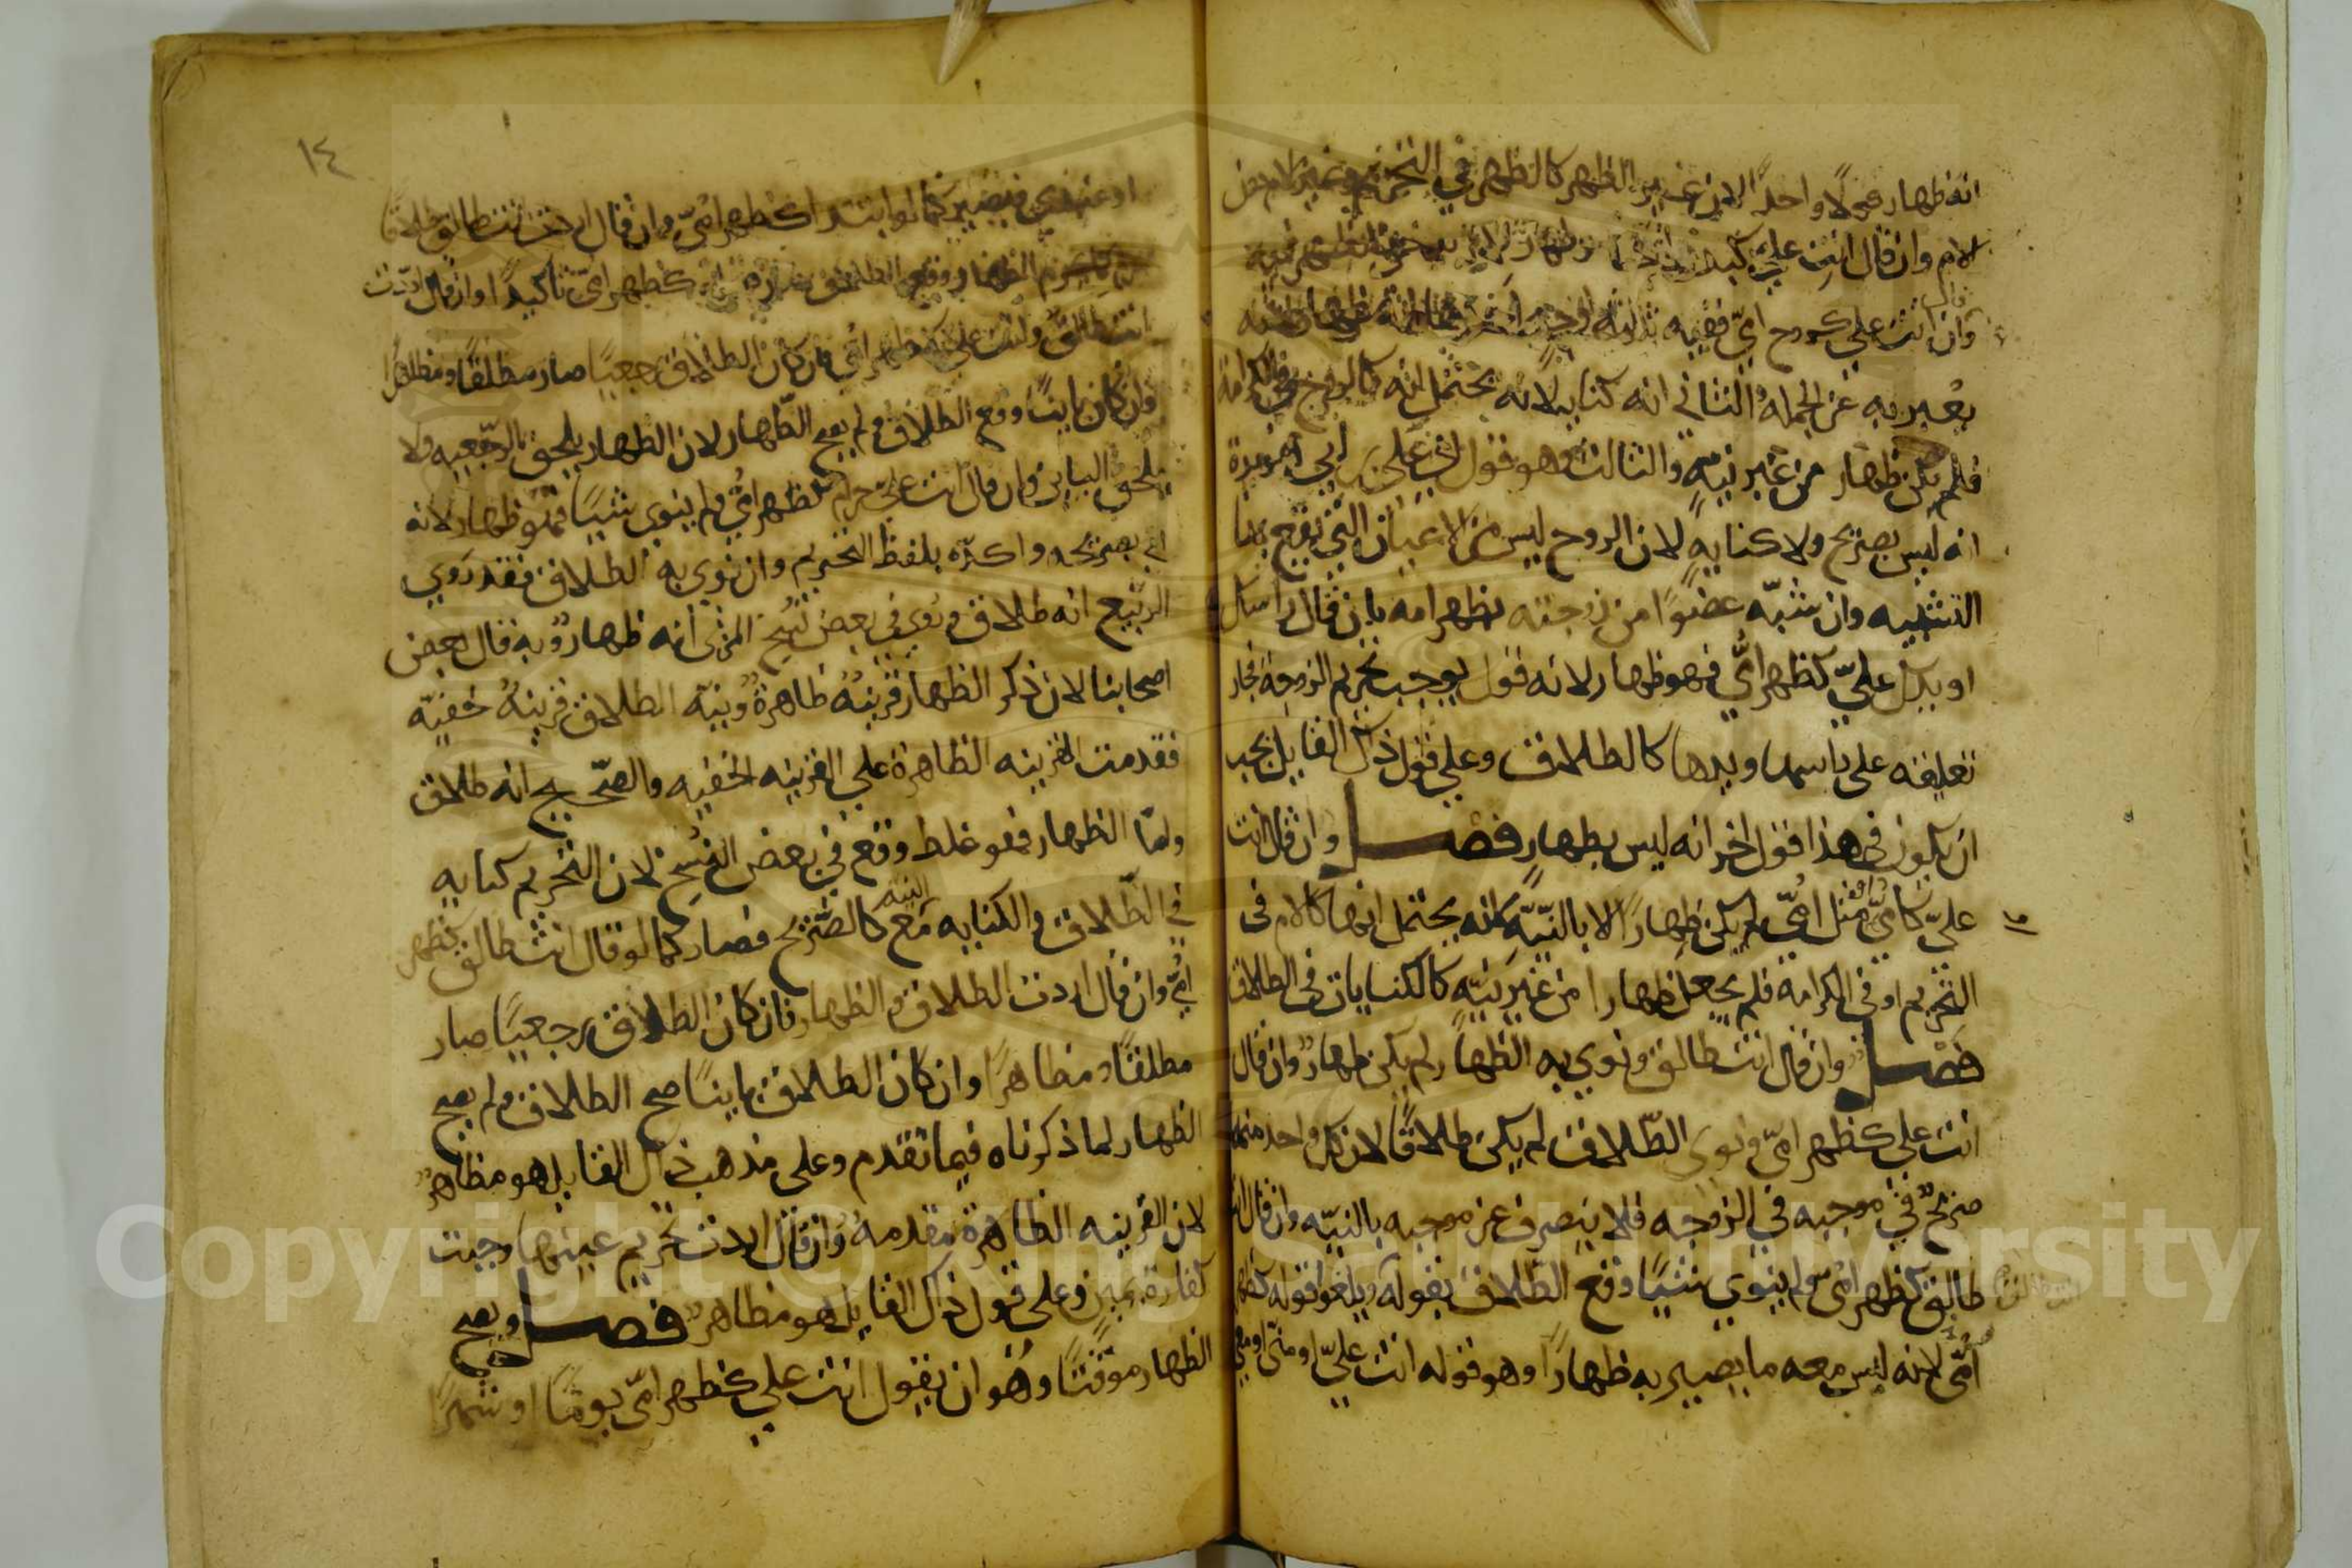 انه ظهار قولا واحدا لان غير الظهر كالظهر في التحريم وغير الام
لام وان قال انت علي كبدن
وان قال انت علي كروح امي ففيه ثلثة اوجه احدها انه ظهار لانه
يعبر به عن الجمله والثاني انه كنايه لانه يحتمل انه كالروح في الكرامة
فلم يكن ظهار من غير نية والثالث وهو قول علي بن ابي هريرة
انه ليس بصريح ولا كنايةٍ لان الروح ليس من الاعيان التي يقع بها
التشبيه وان شبّه عضوًا من زوجته بظهر امه بان قال راسك
او يدك عليّ كظهر امّي فهو ظهار لانه قول يوجب تحريم الزوجة فجاز
تعليقه على راسها ويدها كالطلاق وعلى قول ذلك القايل يجب
ان يكون في هذا قول اخر انه ليس بظهارٍ فصــل وان قال انت
عليّ كامّي او مثل امّي لم يكن ظهارًا الا بالنيّة لانه يحتمل انها كالام في
التحريم او في الكرامة فلم يجعل ظهارا من غير نيّة كالكنايات في الطلاق
فصــل وان قال انت طالق ونوى به الظهار لم يكن ظهار وان قال
انت علي كظهر امّي ونوى الطّلاق لم يكن طلاقًا لان كل واحد منهما
صريحٌ في موجبه في الزوجه فلا ينصرف عن موجبه بالنيّه وان قال انت
طالق كظهر امّي ولم ينوي شيًا وقع الطّلاق بقوله ويلغو قوله كظهر
امّي لانه ليس معه ما يصير به ظهارًا وهو قوله انت عليّ او منّي او معي
١٤
او عندي فيصير كما لو ابتدا كظهر امّي وان قال اردت انت طالق طلاقا
كظهر امّي تاكيدًا وان قال اردت
انت طالق وانت علي كظهر امّي فان كان الطلاق رجعيًا صار مطلقًا ومظاهرًا
وان كان باينًا وقع الطلاق ولم يصح الظّهار لان الظهار يلحق الرّجعيه ولا
يلحق الباين وان قال انت عليّ حرام كظهر امّي ولم ينوي شيًا فهو ظهار لانه
اتى بصريحه واكدّه بلفظ التحريم وان نوى به الطلاق فقد روي
الربيع انه طلاق وروي في بعض نسخ المزني انه ظهار وبه قال بعض
اصحابنا لان ذكر الظهار قرينةٌ ظاهرةٌ ونيّة الطلاق قرينةٌ خفيّه
فقدمت القرينه الظاهرة على القرينه الخفيه والصّحيح انه طلاق
وامّا الظهار فهو غلط وقع في بعض النسخ لان التحريم كنايه
في الطّلاق والكنايه مع النيه كالصّريح فصار كما لو قال انت طالق كظهر
امّي وان قال اردت الطلاق والظهار فان كان الطلاق رجعيًا صار
مطلقًا ومظاهرًا وان كان الطلاق باينًا صح الطلاق ولم يصح
الظهار لما ذكرناه فيما تقدم وعلى مذهب ذلك القايل هو مظاهرٌ
لان القرينه الظاهرة مقدمه وان قال اردت تحريم عينها وجبت
كفارة يمين وعلى قول ذلك القايل هو مظاهر فصــل ويصح
الظهار موقتًا وهو ان يقول انت علي كظهر امّي يومًا او شهرًا
Copyright © King Saud University